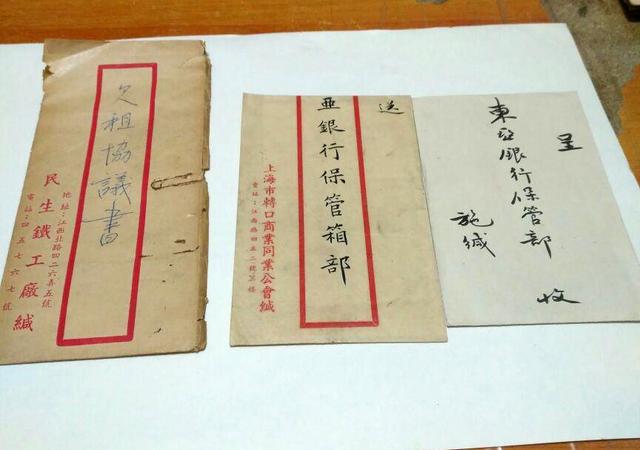 欠租協議書
地址:江西北路四二六弄五號
民生鐵工廠緘
電話:四五七六七號
送
亜銀行保管箱部
上海市轉口商業同業公會緘
電話:江西路四五二號
呈
東亞銀行保管部
收
施緘